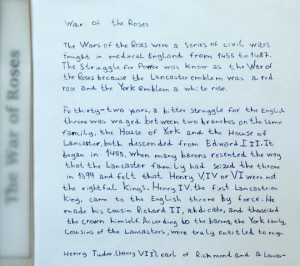 The War of Roses
War of the Roses
The Wars of the Roses were a series of civil wars
fought in medieval England from 1455 to 1487.
The Struggle for Power was know as the War of
the Roses because the Lancaster emblem was a red
rose and the York emblem a white rose.
Fo thirty-two years, a bitter struggle for the English
throne was waged between two branches on the same
family, the House of York and the House of
Lancaster, both descended from Edward III. It
began in 1455, when many barons resented the way
that the Lancaster family had seized the throne
in 1399 and felt that Henry V, IV or VI were not
the rightful Kings. Henry IV, the first Lancastrian
king, came to the English throne by force. He
made his cousin Richard II, abdicate, and
the crown himself. According to the barons, the York family,
cousins of the Lancasters, were truly entitled to reign
Henry Tudor, (Henry VII), earl of Richmond and a